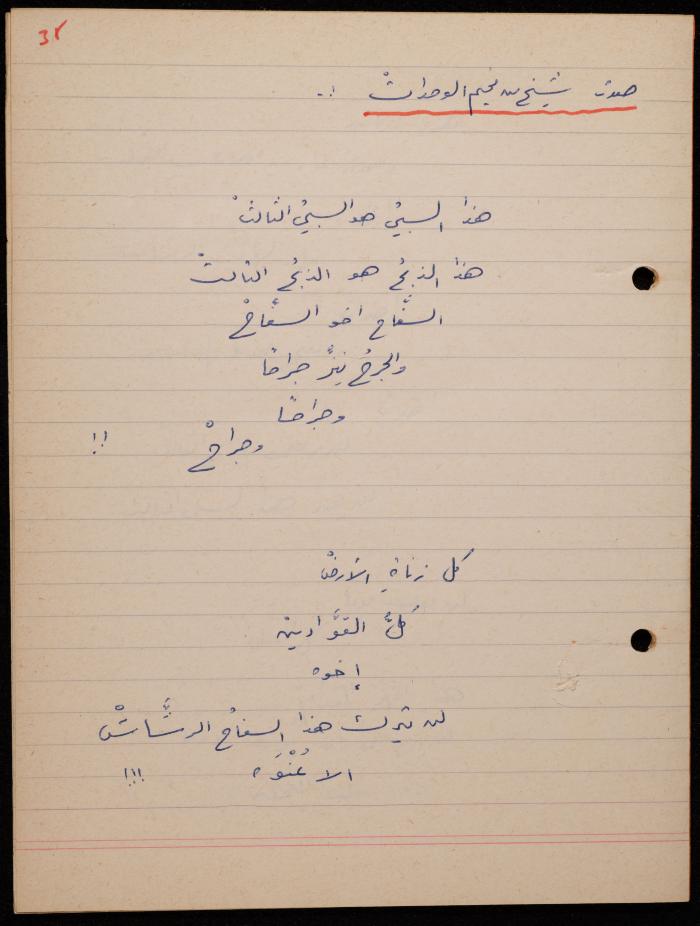 ٣٢
صوت شيخ من مخيم الوحداتْ ..!
هذا السبيُ هو السبيُ الثالثْ
هذا الذبحُ هو الذبحُ الثالثْ
السفَّاح اخو السفَّاحْ
والجرحُ ينزُّ جراحًا
وجراحًا
وجراحْ !!
كل زناةِ الأرضْ
كلُّ القوَّادين
إخوه
لن يترك هذا السفاحُ الرشَّاشْ
الا عُنْوَه !!!